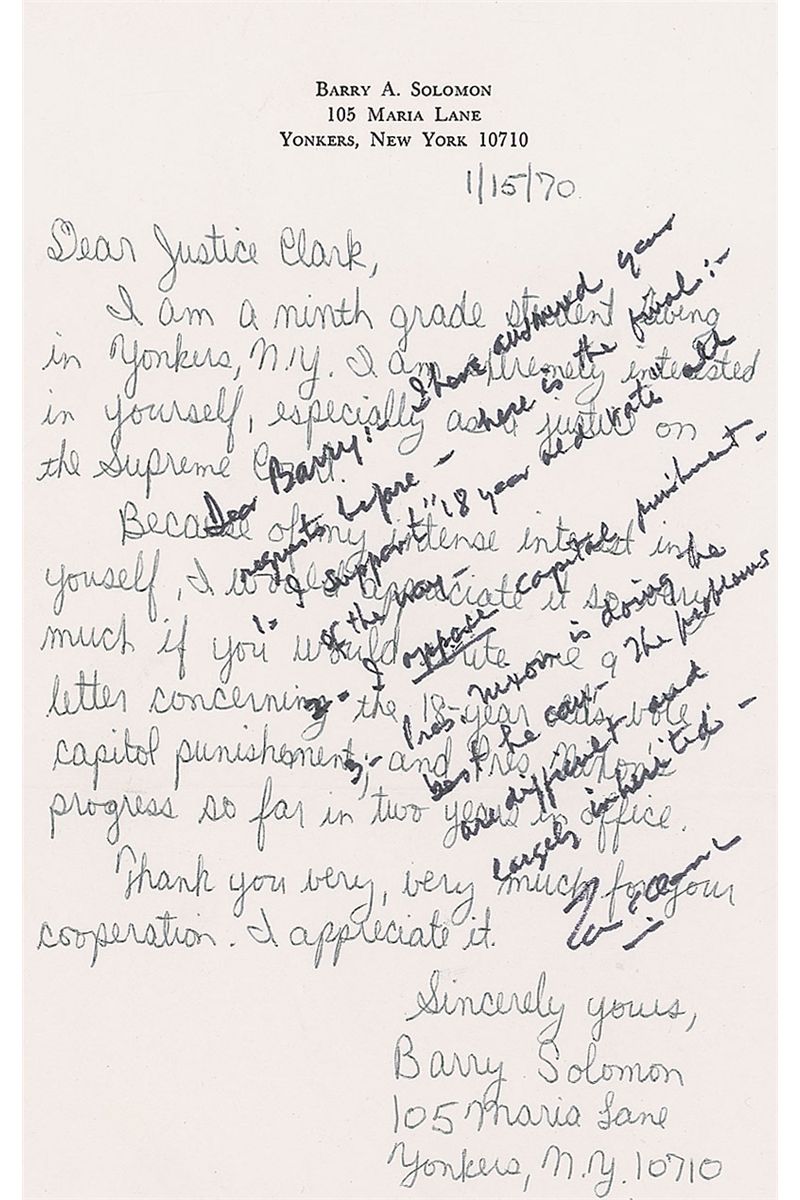 BARRY A. SOLOMON
105 MARIA LANE
YONKERS, NEW YORK 10710
1/15/70
Dear Justice Clark,
I am a ninth grade student living
in Yonkers, N.Y. I am extremely interested
in yourself, especially as a justice on
the Supreme Court.
Because of my intense interest in
youself, I would appreciate it so very
much if you would write me a
letter concerning the 18-year olds vote,
capitol punishement, and Pres. Nixon's
progress so far in two years in office.
Thank you very, very much for your
cooperation. I appreciate it.
Sincerely yours,
Barry Solomon
105 Maria Lane
Yonkers, N.Y. 10710
Dear Barry:- I have answered your
requests before - here is the final:-
1- I support "18 year old vote all
of the way -
2- I oppose capital punishment -
3- Pres. Nixon is doing the
best he can - The problems
are difficult and
largely inherited -